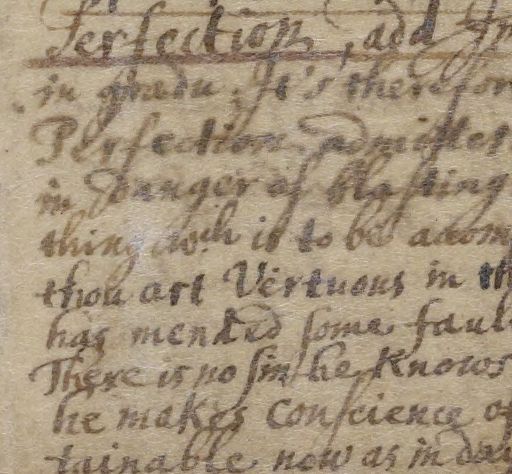 Perfection, add
in gradu. It's therefore
Perfection admittes
in Danger of blasting
thing wch is to be
thou art Vertuous in th
has mended some faul
There is no sin he knows
he makes Conscience of
tainable now as in da